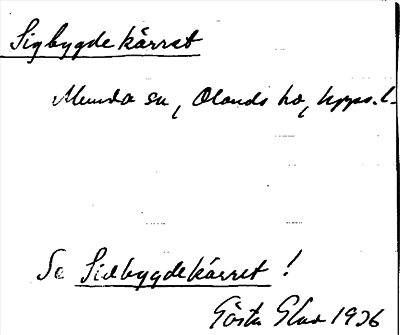 Sigbygdekärret
Munda sn, Olands hd, Upps. l.
Se Sidbygdekärret!
Gösta Glad 1936